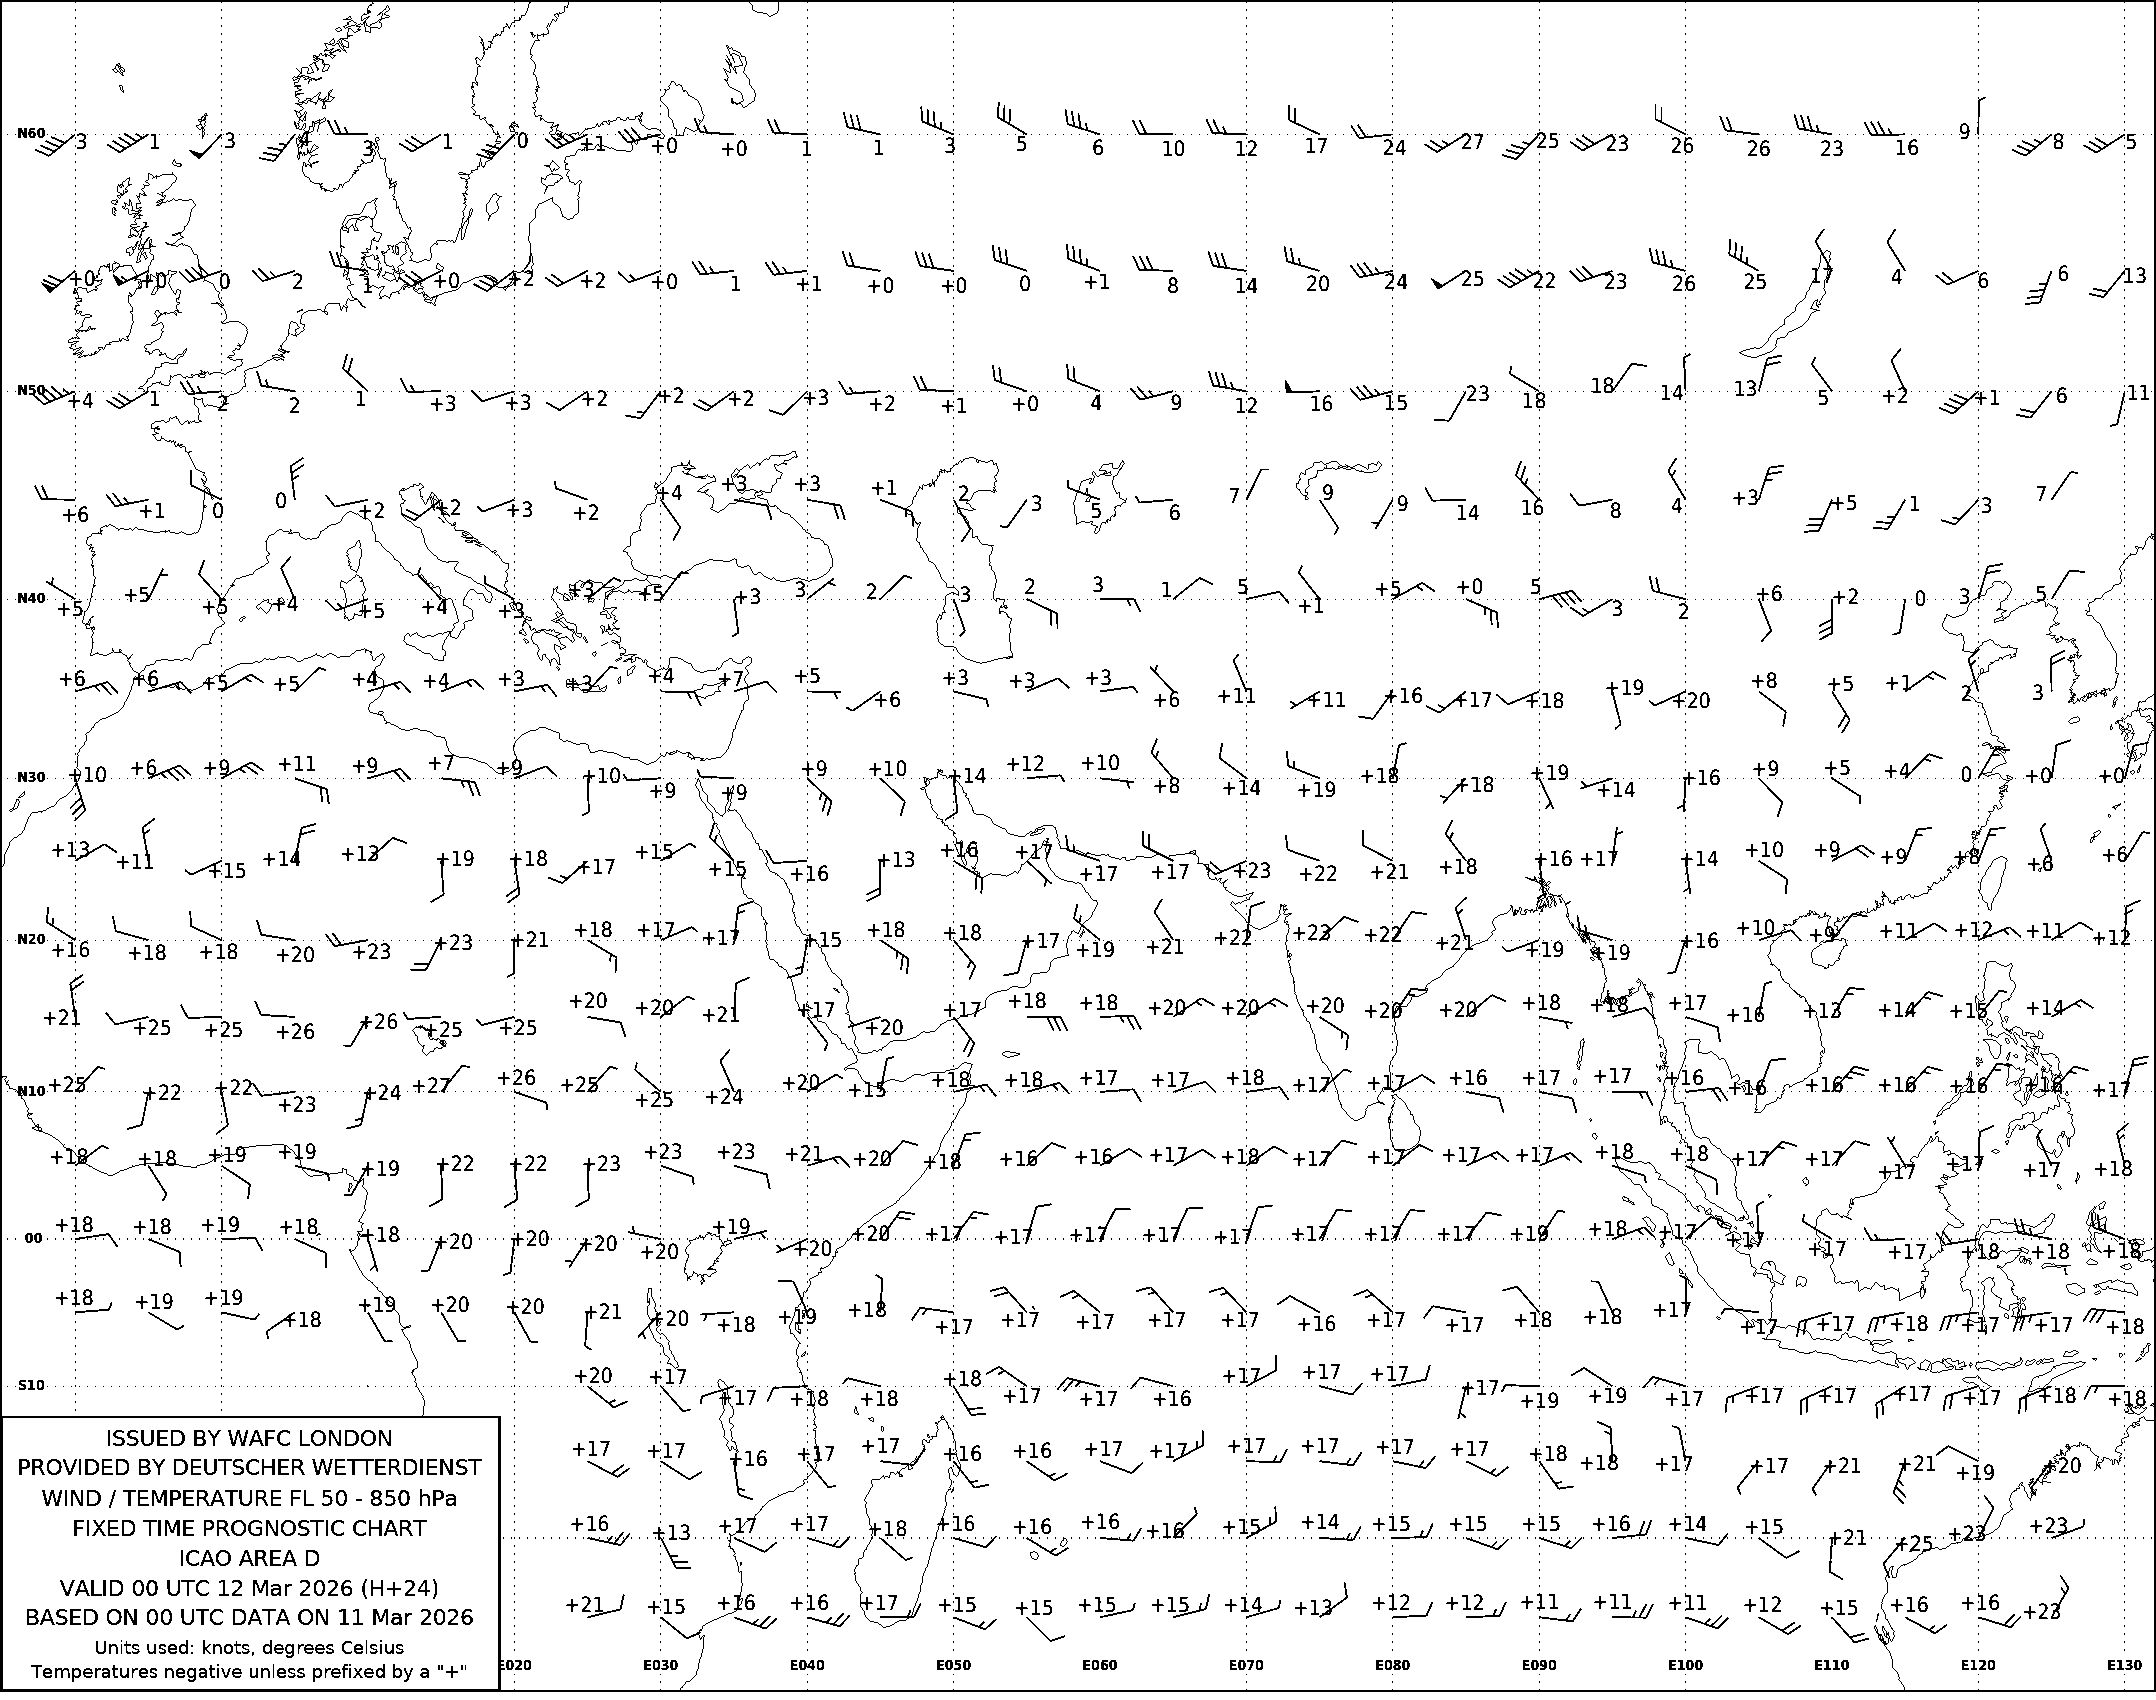 N60 3 1 3 3 1 0 +1 +0 +0 1 1 3 5 6 10 12 17 24 27 25 23 26 26 23 16 9 8 5
+0 +0 0 2 1 +0 +2 +2 +0 1 +1 +0 +0 0 +1 8 14 20 24 25 22 23 26 25 17 4 6 6 13
N50 +4 1 2 2 1 +3 +3 +2 +2 +2 +3 +2 +1 +0 4 9 12 16 15 23 18 18 14 13 5 +2 +1 6 11
+6 +1 0 0 +2 +2 +3 +2 +4 +3 +3 +1 2 3 5 6 7 9 9 14 16 8 4 +3 +5 1 3 7
N40 +5 +5 +5 +4 +5 +4 +3 +3 +5 +3 3 2 3 2 3 1 5 +1 +5 +0 5 3 2 +6 +2 0 3 5
+6 +6 +5 +5 +4 +4 +3 +3 +4 +7 +5 +6 +3 +3 +3 +6 +11 +11 +16 +17 +18 +19 +20 +8 +5 +1 2 3
N30 +10 +6 +9 +11 +9 +7 +9 +10 +9 +9 +9 +10 +14 +12 +10 +8 +14 +19 +18 +18 +19 +14 +16 +9 +5 +4 0 +0 +0
+13 +11 +15 +14 +13 +19 +18 +17 +15 +15 +16 +13 +16 +17 +17 +17 +23 +22 +21 +18 +16 +17 +14 +10 +9 +9 +8 +6 +6
N20 +16 +18 +18 +20 +23 +23 +21 +18 +17 +17 +15 +18 +18 +17 +19 +21 +22 +23 +22 +21 +19 +19 +16 +10 +9 +11 +12 +11 +12
+21 +25 +25 +26 +26 +25 +25 +20 +20 +21 +17 +20 +17 +18 +18 +20 +20 +20 +20 +20 +18 +18 +17 +16 +13 +14 +15 +14
N10 +25 +22 +22 +23 +24 +27 +26 +25 +25 +24 +20 +15 +18 +18 +17 +17 +18 +17 +17 +16 +17 +17 +16 +16 +16 +16 +16 +16 +17
+18 +18 +19 +19 +19 +22 +22 +23 +23 +23 +21 +20 +18 +16 +16 +17 +18 +17 +17 +17 +17 +18 +18 +17 +17 +17 +17 +17 +18
00 +18 +18 +19 +18 +18 +20 +20 +20 +20 +19 +20 +20 +17 +17 +17 +17 +17 +17 +17 +17 +19 +18 +17 +17 +17 +17 +18 +18 +18
+18 +19 +19 +18 +19 +20 +20 +21 +20 +18 +19 +18 +17 +17 +17 +17 +17 +16 +17 +17 +18 +18 +17 +17 +17 +18 +17 +17 +18
S10 +20 +17 +17 +18 +18 +18 +17 +17 +16 +17 +17 +17 +17 +19 +19 +17 +17 +17 +17 +17 +18 +18
+17 +17 +16 +17 +17 +16 +16 +17 +17 +17 +17 +17 +17 +18 +18 +17 +17 +21 +21 +19 +20
+16 +13 +17 +17 +18 +16 +16 +16 +16 +15 +14 +15 +15 +15 +16 +14 +15 +21 +25 +23 +23
+21 +15 +16 +16 +17 +15 +15 +15 +15 +14 +13 +12 +12 +11 +11 +11 +12 +15 +16 +16 +23
ISSUED BY WAFC LONDON
PROVIDED BY DEUTSCHER WETTERDIENST
WIND / TEMPERATURE FL 50 - 850 hPa
FIXED TIME PROGNOSTIC CHART
ICAO AREA D
VALID 00 UTC 12 Mar 2026 (H+24)
BASED ON 00 UTC DATA ON 11 Mar 2026
Units used: knots, degrees Celsius
Temperatures negative unless prefixed by a "+"
E020 E030 E040 E050 E060 E070 E080 E090 E100 E110 E120 E130